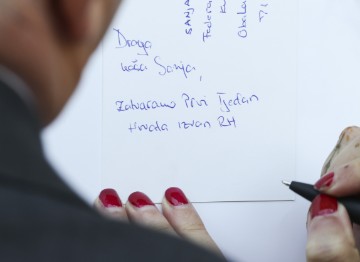 Draga
naša Sanja,
Zatvaramo Prvi Tjedan
Hrvata izvan RH
SANJA
Federa
Obala